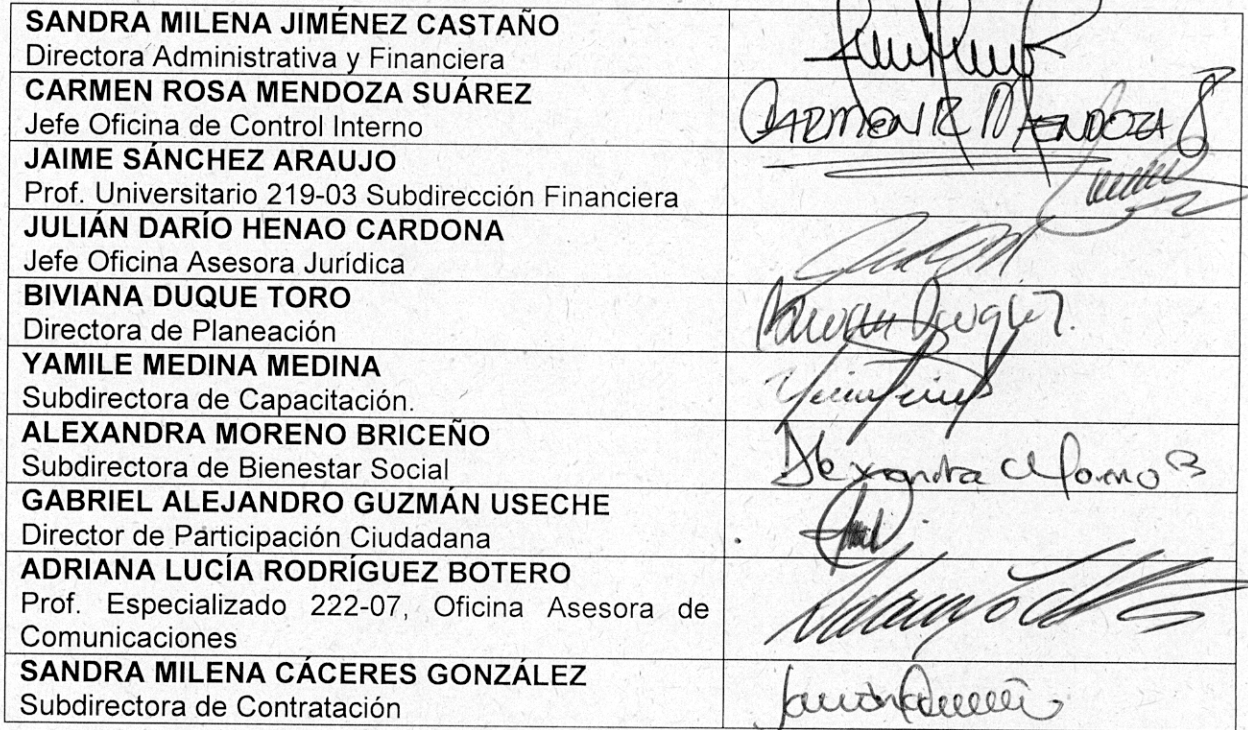 SANDRA MILENA JIMÉNEZ CASTAÑO
Directora Administrativa y Financiera
CARMEN ROSA MENDOZA SUÁREZ
Jefe Oficina de Control Interno
CARMEN R MENDOZA S
JAIME SÁNCHEZ ARAUJO
Prof. Universitario 219-03 Subdirección Financiera
JULIÁN DARÍO HENAO CARDONA
Jefe Oficina Asesora Jurídica
BIVIANA DUQUE TORO
Directora de Planeación
YAMILE MEDINA MEDINA
Subdirectora de Capacitación.
ALEXANDRA MORENO BRICEÑO
Subdirectora de Bienestar Social
Alexandra Moreno B
GABRIEL ALEJANDRO GUZMÁN USECHE
Director de Participación Ciudadana
ADRIANA LUCÍA RODRÍGUEZ BOTERO
Prof. Especializado 222-07, Oficina Asesora de
Comunicaciones
SANDRA MILENA CÁCERES GONZÁLEZ
Subdirectora de Contratación